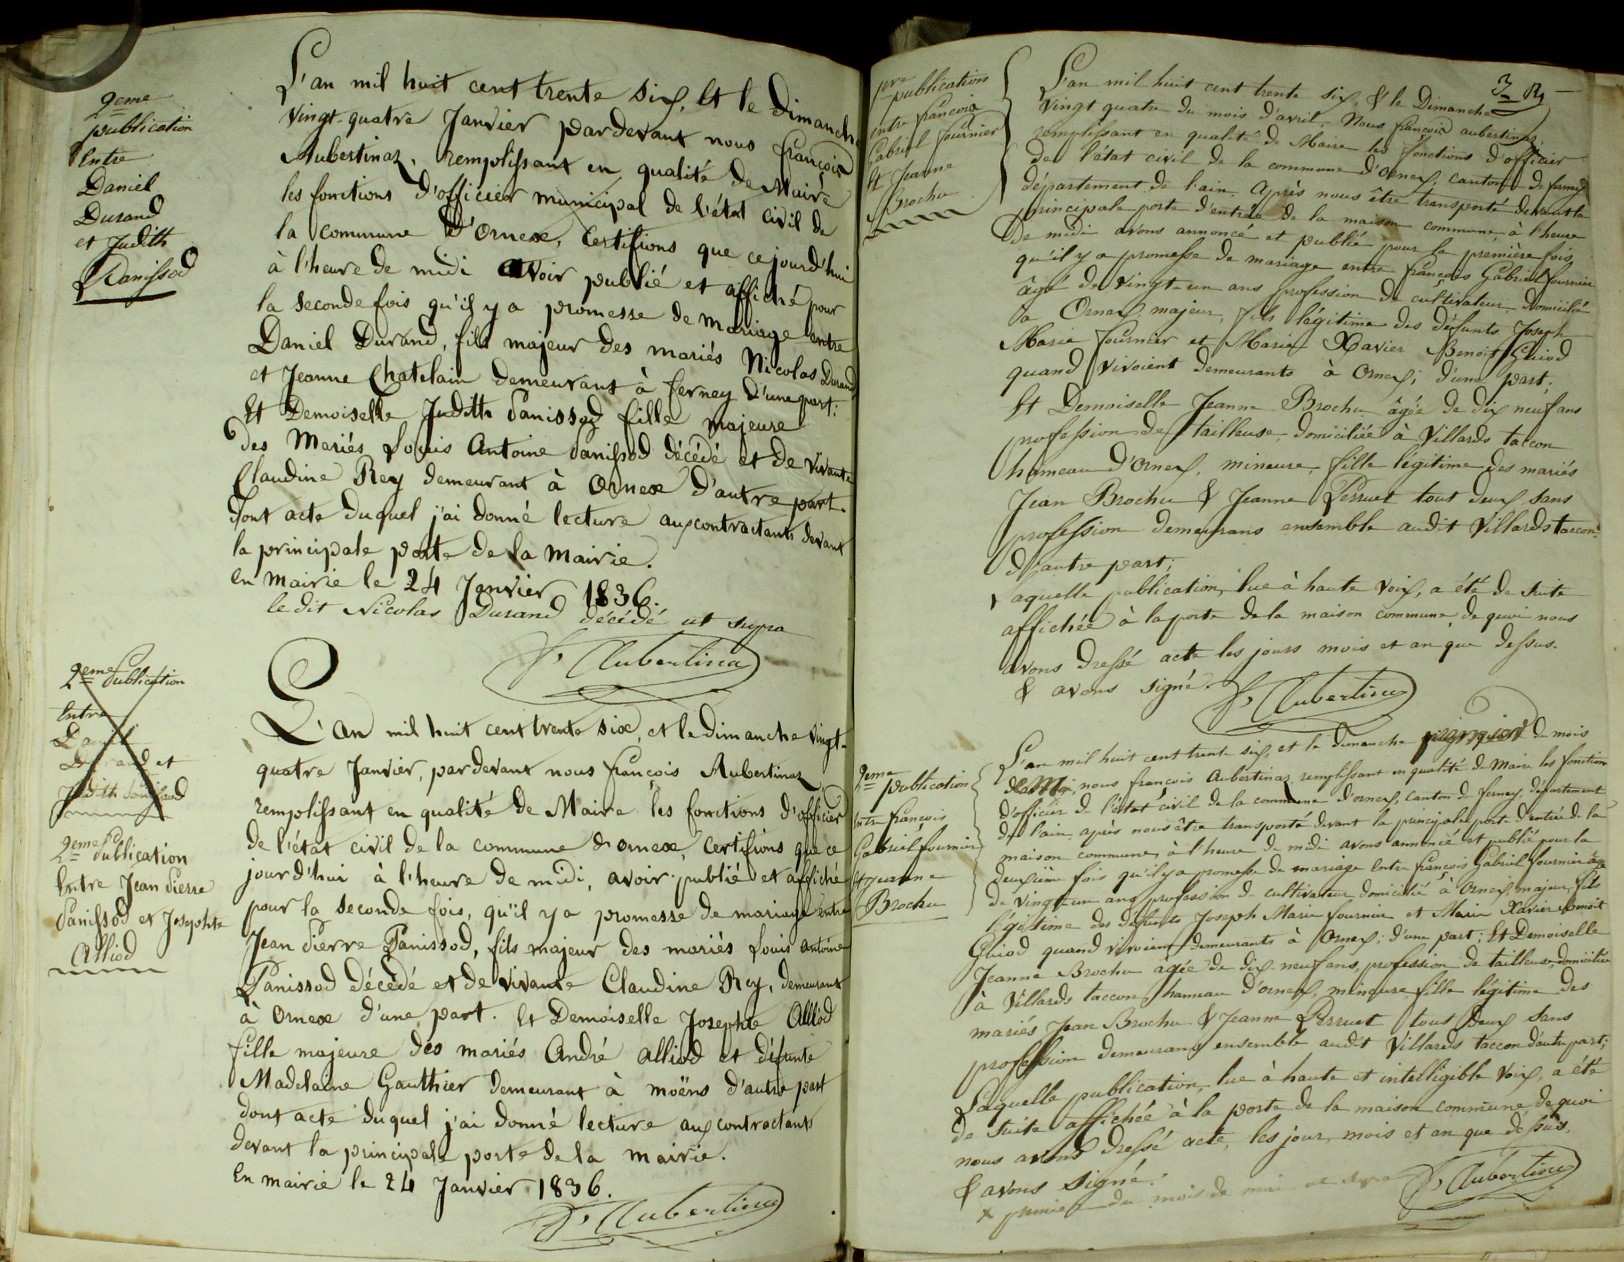 2eme
publication
Entre
Daniel
Durand
et Judith
Panissod
L'an mil huit cent trente six, et le Dimanche
vingt-quatre Janvier pardevant nous françois
Aubertinaz, remplissant en qualité de Maire
les fonctions d'officier municipal de l'état civil de
la commune d'Ornex, Certifions que cejourd'hui
à l'heure de midi avoir publié et affiché pour
la seconde fois qu'il y a promesse de mariage entre
Daniel Durand, fils majeur des mariés Nicolas Durand
et Jeanne Chatelain demeurant à ferney d'une part;
Et Demoiselle Judith Panissod fille majeure
des Mariés Louis Antoine Panissod décédé et de vivante
Claudine Rey demeurant à Ornex d'autre part.
Dont acte duquel j'ai donné lecture aux contractants devant
la principale porte de la Mairie.
En Mairie le 24 Janvier 1836.
le dit Nicolas Durand décédé ut supra
fs Aubertinaz
2eme Publication
Entre
Daniel
Durand et
Judith Panissod
2eme Publication
Entre Jean Pierre
Panissod et Josephte
Alliod
L'An mil huit cent trente six, et le dimanche vingt-
quatre Janvier, pardevant nous françois Aubertinaz
remplissant en qualité de Maire les fonctions d'officier
de l'état civil de la commune d'ornex, Certifions que ce
jourd'hui à l'heure de midi, avoir publié et affiché
pour la seconde fois, qu'il y a promesse de mariage entre
Jean Pierre Panissod, fils majeur des mariés Louis Antoine
Panissod décédé et de vivante Claudine Rey, demeurant
à Ornex d'une part. Et Demoiselle Josephte Alliod
fille majeure des mariés André alliod et défunte
Madelaine Gauthier demeurant à moëns d'autre part
dont acte duquel j'ai donné lecture aux contractants
devant la principale porte de la mairie.
En mairie le 24 Janvier 1836.
fs Aubertinaz
3
1ere
publication
entre françois
Gabriel fournier
Et Jeanne
Brochu
L'an mil huit cent trente six, & le Dimanche
vingt quatre du mois d'avril, Nous françois aubertinaz,
remplissant en qualité de Maire les fonctions d'officier
de l'état civil de la commune d'Ornex, canton de ferney
département de l'ain. Après nous être transporté devant la
principale porte d'entrée de la maison commune à l'heure
de midi avons annoncé et publié pour la première fois,
qu'il y a promesse de mariage entre françois Gabriel fournier
âgé de vingt un ans profession de cultivateur domicilié
à Ornex, majeur, fils légitime des défunts Joseph
Marie fournier et Marie Xavier Benoit Guiod
quand vivoient demeurants à Ornex; d'une part;
Et Demoiselle Jeanne Brochu âgée de dix neuf ans
profession de tailleuse, domiciliée à Villards taccon
hameau d'Ornex, mineure, fille légitime des mariés
Jean Brochu & Jeanne Perruet tout deux sans
profession demeurans ensemble audit Villards taccon
d'autre part;
Laquelle publication, lue à haute voix, a été de suite
affichée à la porte de la maison commune, de quoi nous
avons dressé acte les jours mois et an que dessus.
& avons signé.
fs Aubertinaz
2eme
publication
entre françois
Gabriel fournier
et Jeanne
Brochu
L'an mil huit cent trente six, et le dimanche premier de mois
de Mai, nous françois Aubertinaz remplissant en qualité de Maire les fonctions
d'officier de l'état civil de la commune d'ornex, Canton de ferney, département
de l'ain, après nous être transporté devant la principale porte d'entrée de la
maison commune, à l'heure de midi avons annoncé et publié pour la
deuxième fois qu'il y a promesse de mariage Entre françois Gabriel fournier âgé
de vingt-un ans profession de cultivateur domicilié à Ornex, majeur, fils
légitime des défunts Joseph Marie fournier et Marie Xavier Benoit
Guiod quand vivoient demeurants à Ornex; d'une part; Et Demoiselle
Jeanne Brochu agée de dix neuf ans, profession de tailleuse, domiciliée
à Villards taccon hameau d'ornex, mineure fille légitime des
mariés Jean Brochu & Jeanne Perruet tout deux sans
profession demeurans ensemble audit Villards taccon d'autre part;
Laquelle publication, lue à haute et intelligible voix, a été
de suite affichée à la porte de la maison commune de quoi
nous avons dressé acte, les jour, mois et an que dessus.
& avons signé.
x premier du mois de mai ut supra
fs Aubertinaz